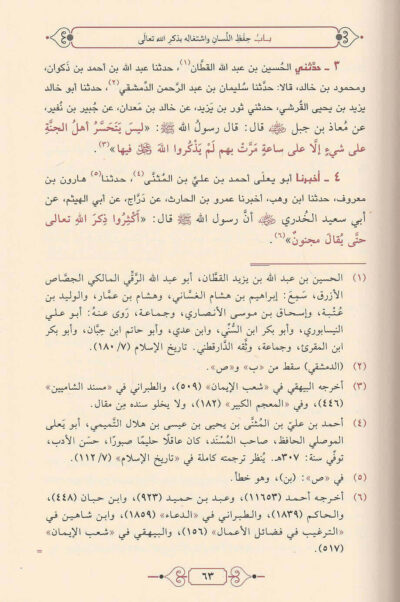 بَابُ حِفْظِ اللّسان واشتغاله بذكر الله تعالى
٣ ـ حدَّثني الحُسين بن عبد الله القطّان(١)، حدثنا عبد الله بن أحمد بن ذكوان،
ومحمود بن خالد، قالا: حدَّثنا سُليمان بن عبد الرَّحمن الدِّمشقي(٢)، حدثنا أبو خالد
يزيد بن يحيى القُرشي، حدثني ثور بن يَزيد، عن خالد بن مَعدان، عن جُبير بن نُفير،
عن مُعاذ بن جبل ﵁ قال: قال رسولُ الله ﷺ: «ليسَ يَتَحَسَّرُ أهلُ الجنَّةِ
على شيءٍ إلَّا على ساعةٍ مَرَّتْ بهم لَمْ يَذْكُروا اللهَ ﷿ فيها»(٣).
٤ ـ أخبرنا أبو يعلى أحمد بن عليّ بن المُثنَّى(٤)، حدثنا(٥) هارون بن
معروف، حدثنا ابن وهب، أخبرنا عمرو بن الحارث، عن دَرَّاج، عن أبي الهيثم، عن
أبي سعيد الخُدري ﵁ أنَّ رسول الله ﷺ قال: «أَكْثِرُوا ذِكرَ اللهِ تعالى
حتَّى يُقالَ مجنونٌ»(٦).
(١) الحسين بن عبد الله بن يزيد القطَّان، أبو عبد الله الرَّقِّي المالكي الجصَّاص
الأزرق، سَمِعَ: إبراهيم بن هشام الغسَّاني، وهشام بن عمَّار، والوليد بن
عُتْبة، وإسحاق بن موسى الأنصاري، وجماعة، رَوى عنهُ: أبو علي
النيسابوري، وأبو بكر ابن السُّنِّي، وابن عدي، وأبو حاتم ابن حِبَّان، وأبو بكر
ابن المقرئ، وجماعة، وثَّقه الدَّارقطني. تاريخ الإسلام (٧/ ١٨٠).
(٢) (الدمشقي) سقط من «ب» و«ص».
(٣) أخرجه البيهقي في «شعب الإيمان» (٥٠٩)، والطبراني في «مسند الشاميين»
(٤٤٦)، وفي «المعجم الكبير» (١٨٢)، ولا يخلو سنده مِن مقال.
(٤) أحمد بن عليّ بن المُثَنَّى بن يحيى بن عيسى بن هلال التَّميمي، أبو يَعلى
الموصلي الحافظ، صاحب المُسْنَد، كان عاقلًا حليمًا صبورًا، حسَن الأدب،
توفّي سنة: ٣٠٧هـ. يُنظر ترجمته كاملة في «تاريخ الإسلام» (٧/ ١١٢).
(٥) في «ص»: (بن)، وهو خطأ.
(٦) أخرجه أحمد (١١٦٥٣)، وعبد بن حميد (٩٢٣)، وابن حبان (٤٤٨)،
والحاكم (١٨٣٩)، والطبراني في «الدعاء» (١٨٥٩)، وابن شاهين في
«الترغيب في فضائل الأعمال» (١٥٦)، والبيهقي في «شعب الإيمان»
(٥١٧). =
٦٣